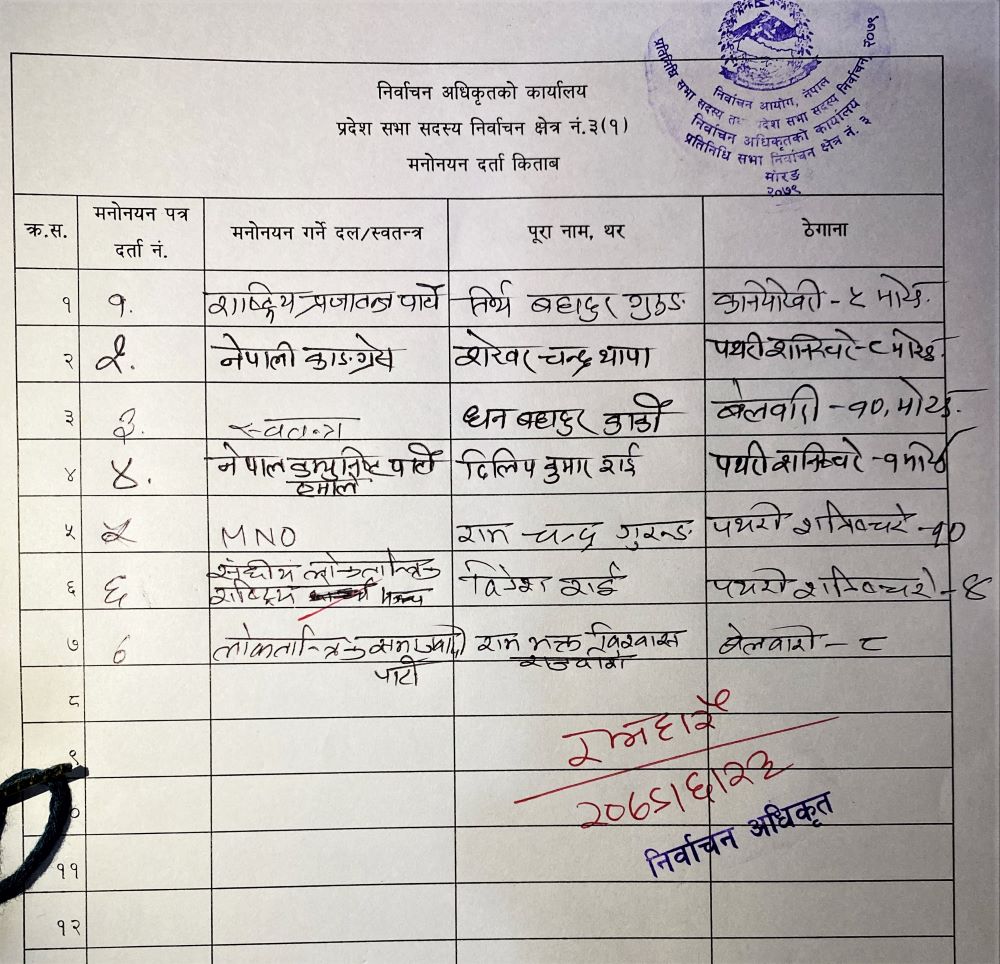 निर्वाचन आयोग, नेपाल
प्रतिनिधि सभा सदस्य तथा प्रदेश सभा सदस्य निर्वाचन, २०७९
निर्वाचन अधिकृतको कार्यालय
प्रतिनिधि सभा निर्वाचन क्षेत्र नं. ३
मोरङ
२०७९
निर्वाचन अधिकृतको कार्यालय
प्रदेश सभा सदस्य निर्वाचन क्षेत्र नं.३(१)
मनोनयन दर्ता किताब
क्र.स. मनोनयन पत्र दर्ता नं. मनोनयन गर्ने दल/स्वतन्त्र पूरा नाम, थर ठेगाना
१ १. राष्ट्रिय प्रजातन्त्र पार्टी तिर्थ बहादुर गुरुङ कानेपोखरी - ५ मोरङ
२ २. नेपाली काङग्रेस शेखर चन्द्र थापा पथरी शनिश्चरे - ८ मोरङ
३ ३. स्वतन्त्र धन बहादुर कार्की बेलवारी - १०, मोरङ
४ ४. नेपाल कम्युनिष्ट पार्टी एमाले दिलिप कुमार राई पथरी शनिश्चरे - १ मोरङ
५ ५ MNO राम चन्द्र गुरुङ पथरी शनिश्चरे - १०
६ ६ संघीय लोकतान्त्रिक राष्ट्रिय मञ्च राई पथरी शनिश्चरे - ४
७ ७ लोकतान्त्रिक समाजवादी पार्टी राम भक्त विश्वास राजवंशी बेलवारी - ८
८
९
०
११
१२
२०७९।६।२३
निर्वाचन अधिकृत